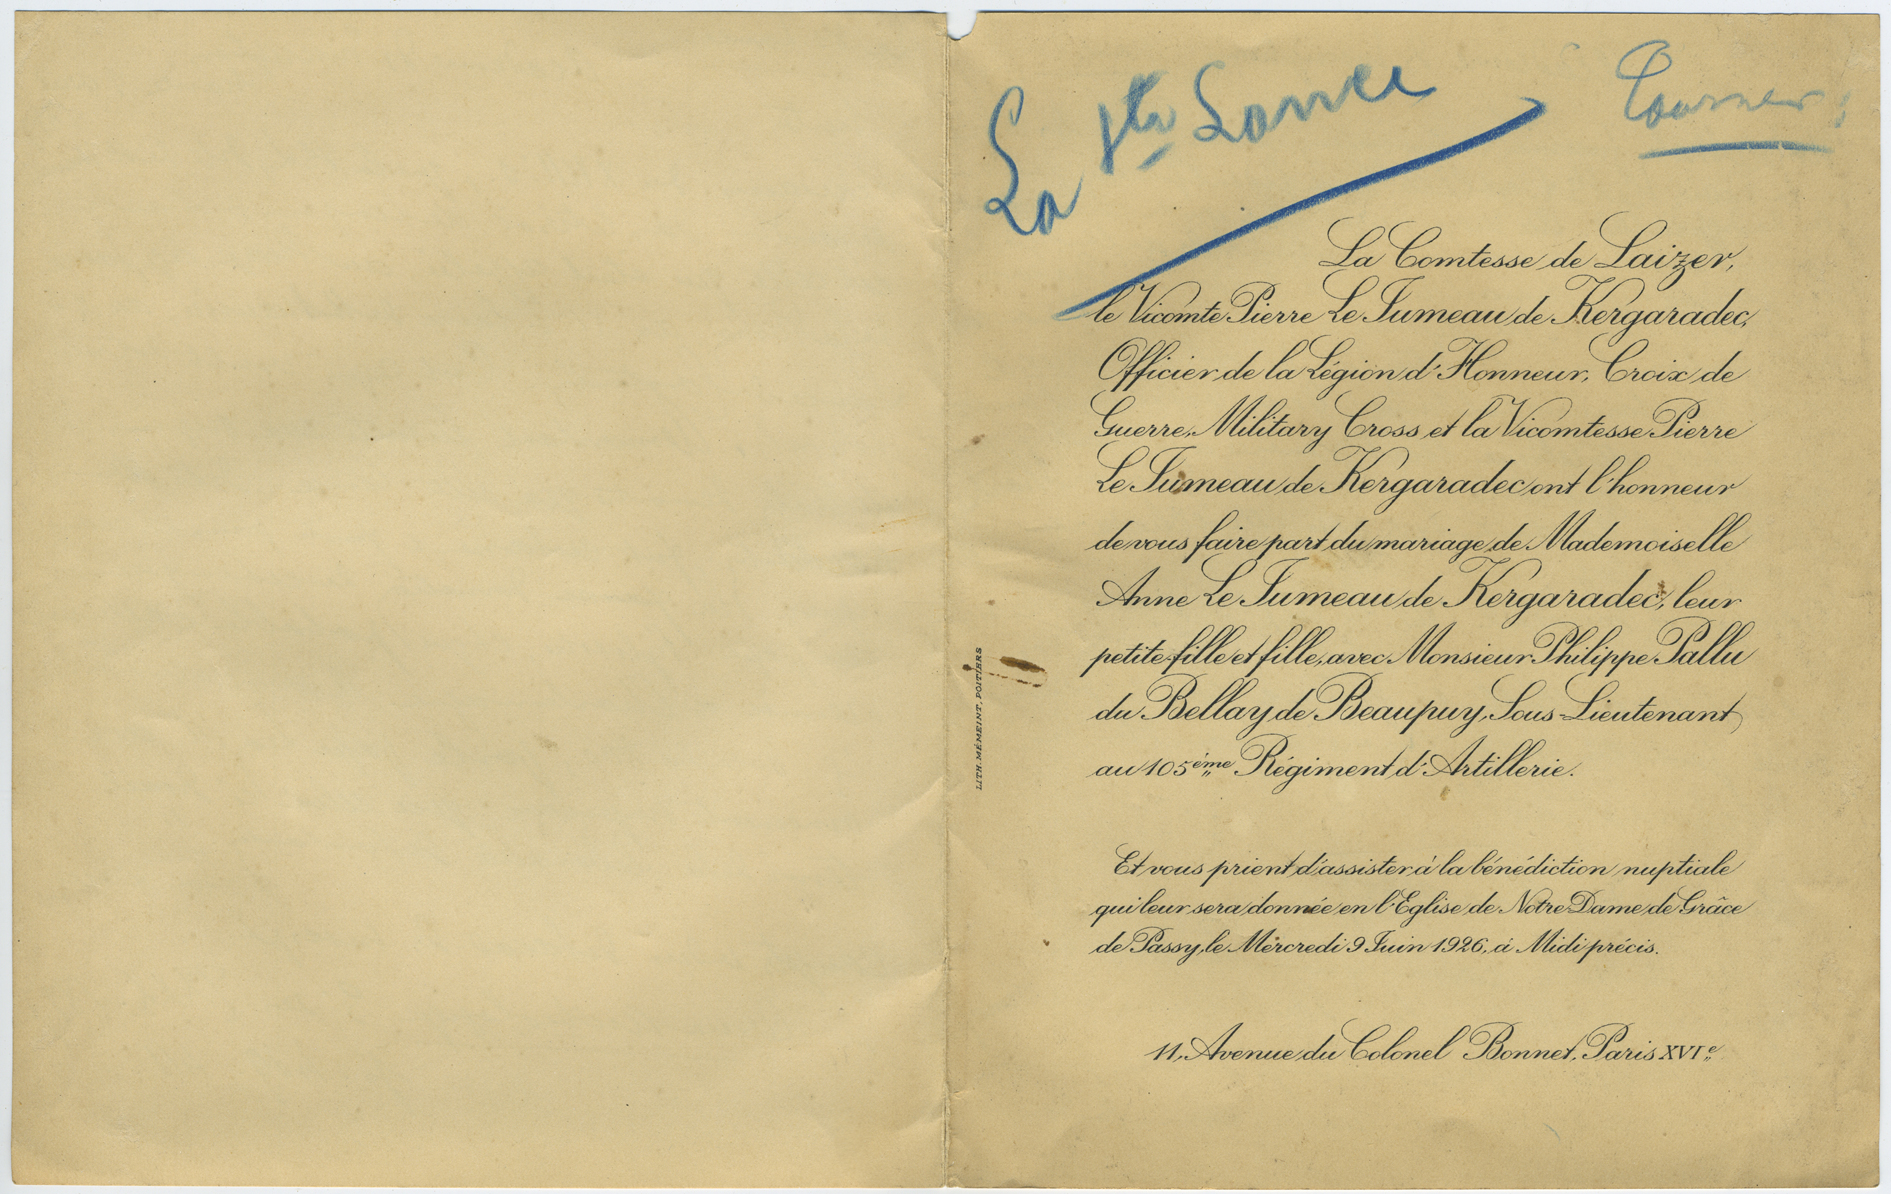 La Ste
Tournez
La Comtesse de Laizer,
le Vicomte Pierre Le Jumeau de Kergaradec,
Officier de la Légion d'Honneur, Croix de
Guerre, Military Cross et la Vicomtesse Pierre
Le Jumeau de Kergaradec ont l'honneur
de vous faire part du mariage de Mademoiselle
Anne Le Jumeau de Kergaradec, leur
petite-fille et fille, avec Monsieur Philippe Pallu
du Bellay de Beaupuy, Sous-Lieutenant
au 105ème Régiment d'Artillerie.
Et vous prient d'assister à la bénédiction nuptiale
qui leur sera donnée en l'Eglise de Notre Dame de Grâce
de Passy, le Mercredi 9 Juin 1926, à Midi précis.
11, Avenue du Colonel Bonnet, Paris XVIe
LITH. MÉMEINT, POITIERS